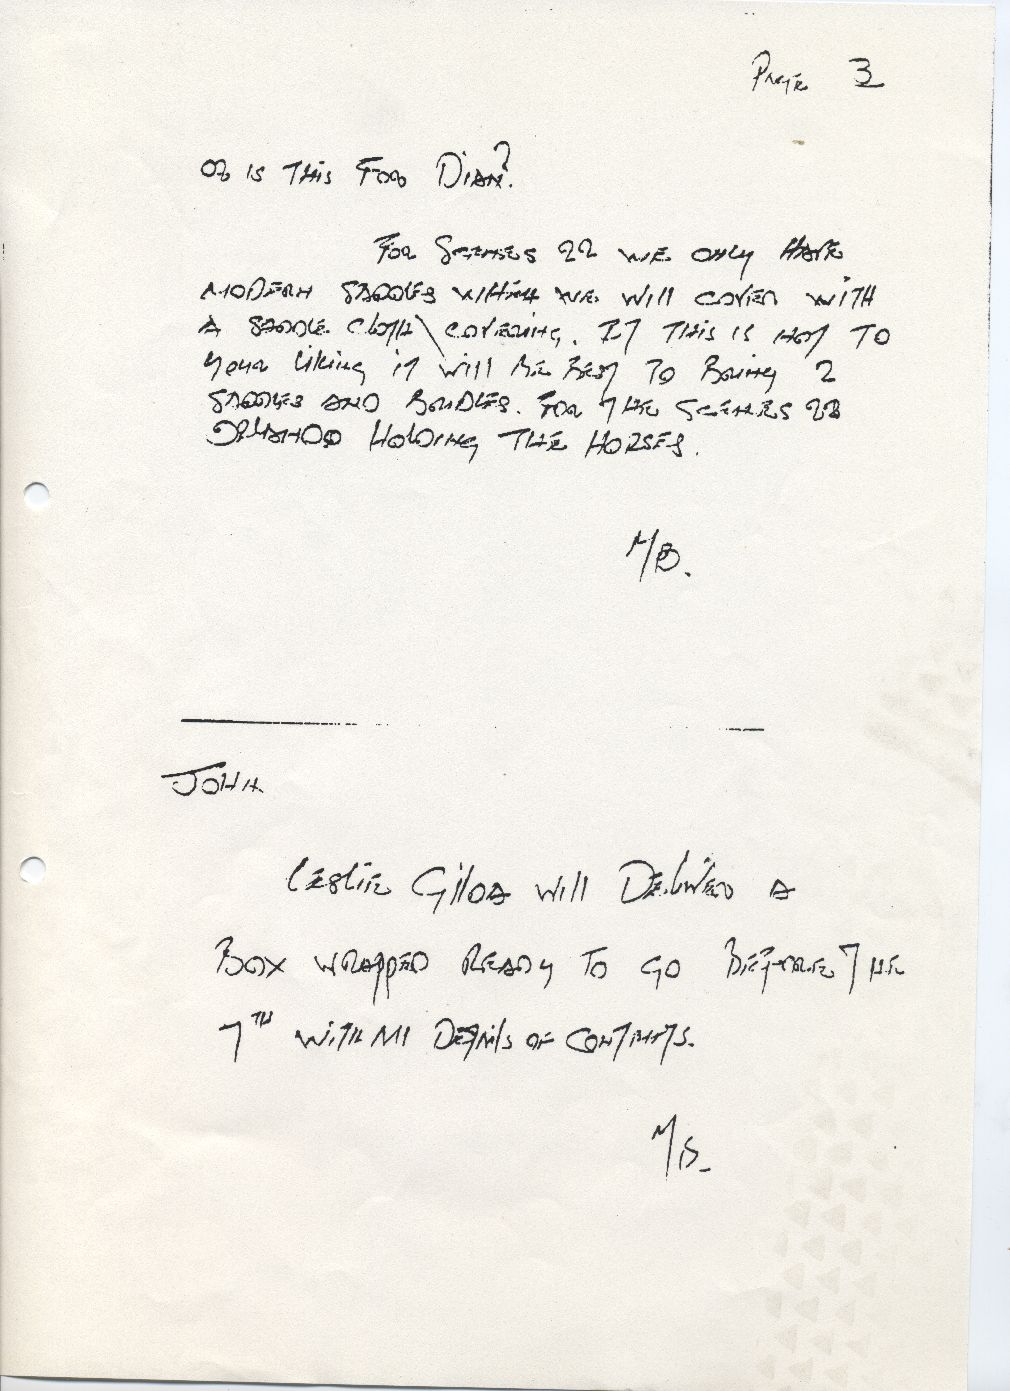 Page 3
OR IS THIS FOR DIAN?
FOR SCENES 22 WE ONLY HAVE
MODERN SADDLES WHICH WE WILL COVER WITH
A SADDLE CLOTH\COVERING. IF THIS IS NOT TO
YOUR LIKING IT WILL BE BEST TO BRING 2
SADDLES AND BRIDLES. FOR THE SCENES 22
HOLDING THE HORSES.
M/B.
JOHN.
LESLIE GILDA WILL DELIVER A
BOX WRAPPED READY TO GO BEFORE THE
7TH WITH DETAILS OF CONTENTS.
M/B.